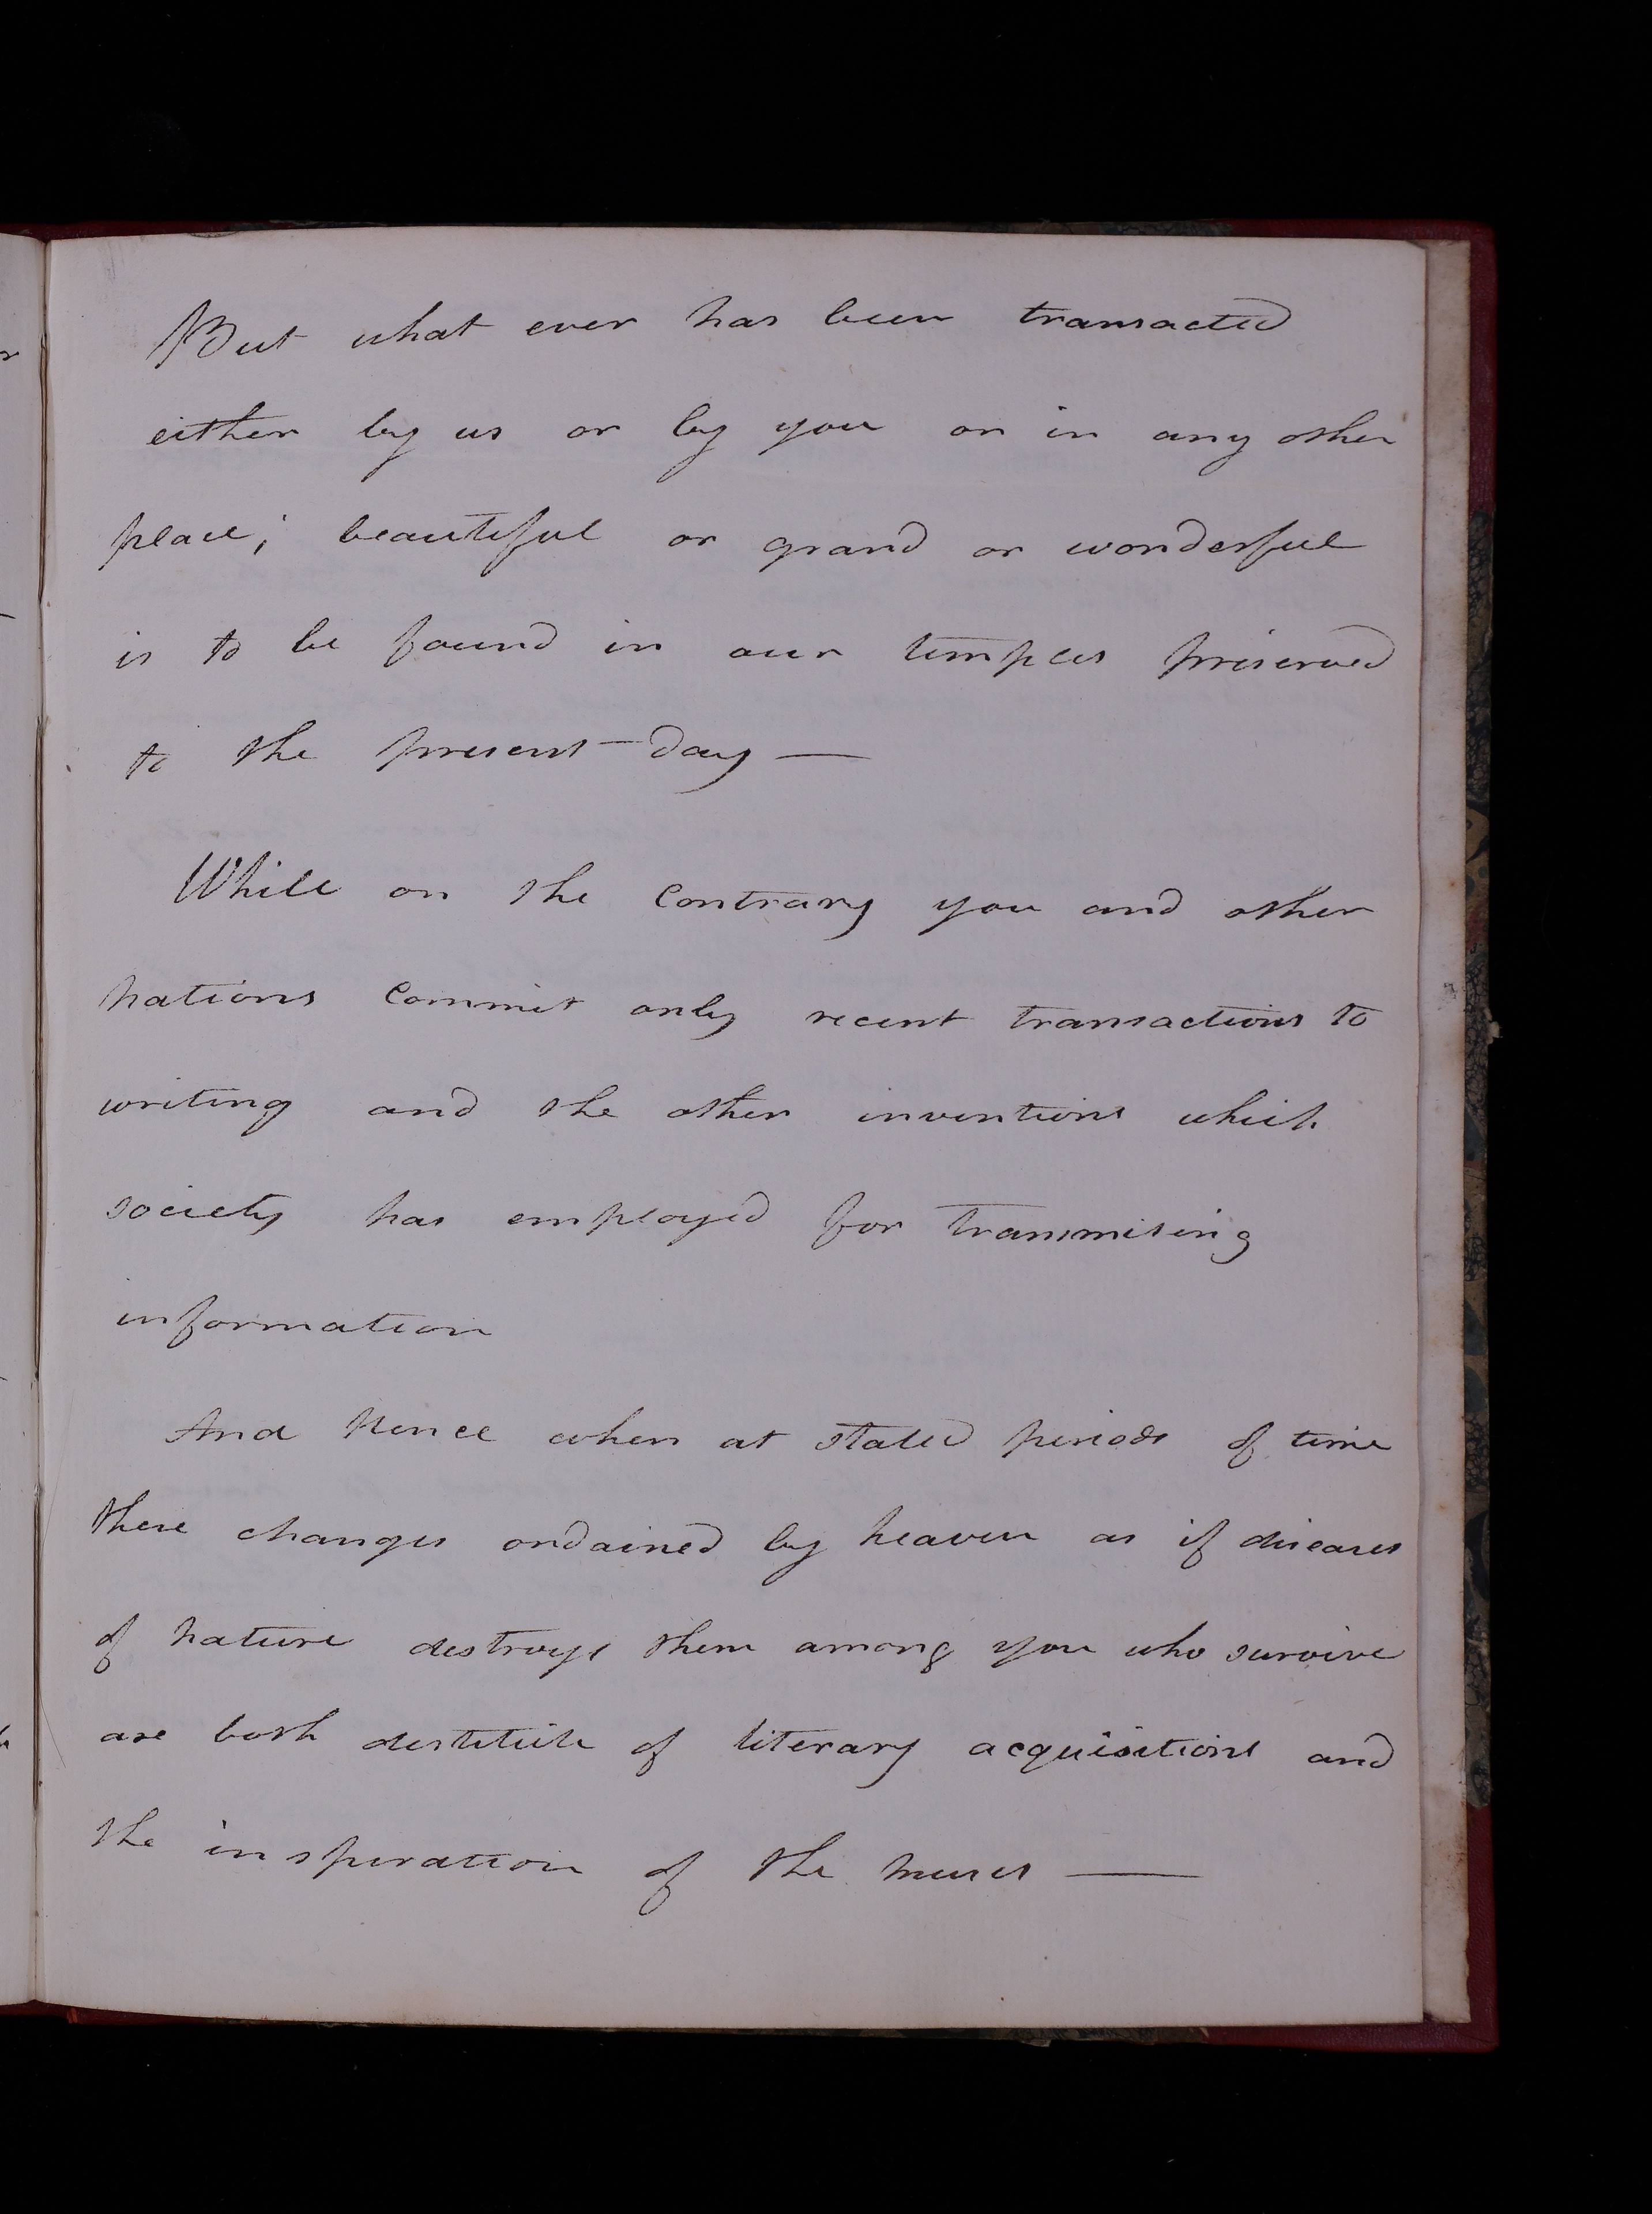 But what ever has been transacted
either by us or by you or in any other
place; beautiful or grand or wonderful
is to be found in our temples preserved
to the present day —
While on the Contrary you and other
nations Commit only recent transactions to
writing and the other inventions which
society has employed for transmising
information
And Hence when at stated periods of time
these changes ordained by heaven as if diseases
of nature destroys them among you who survive
are both destitute of literary acquisitions and
the inspiration of the muses —